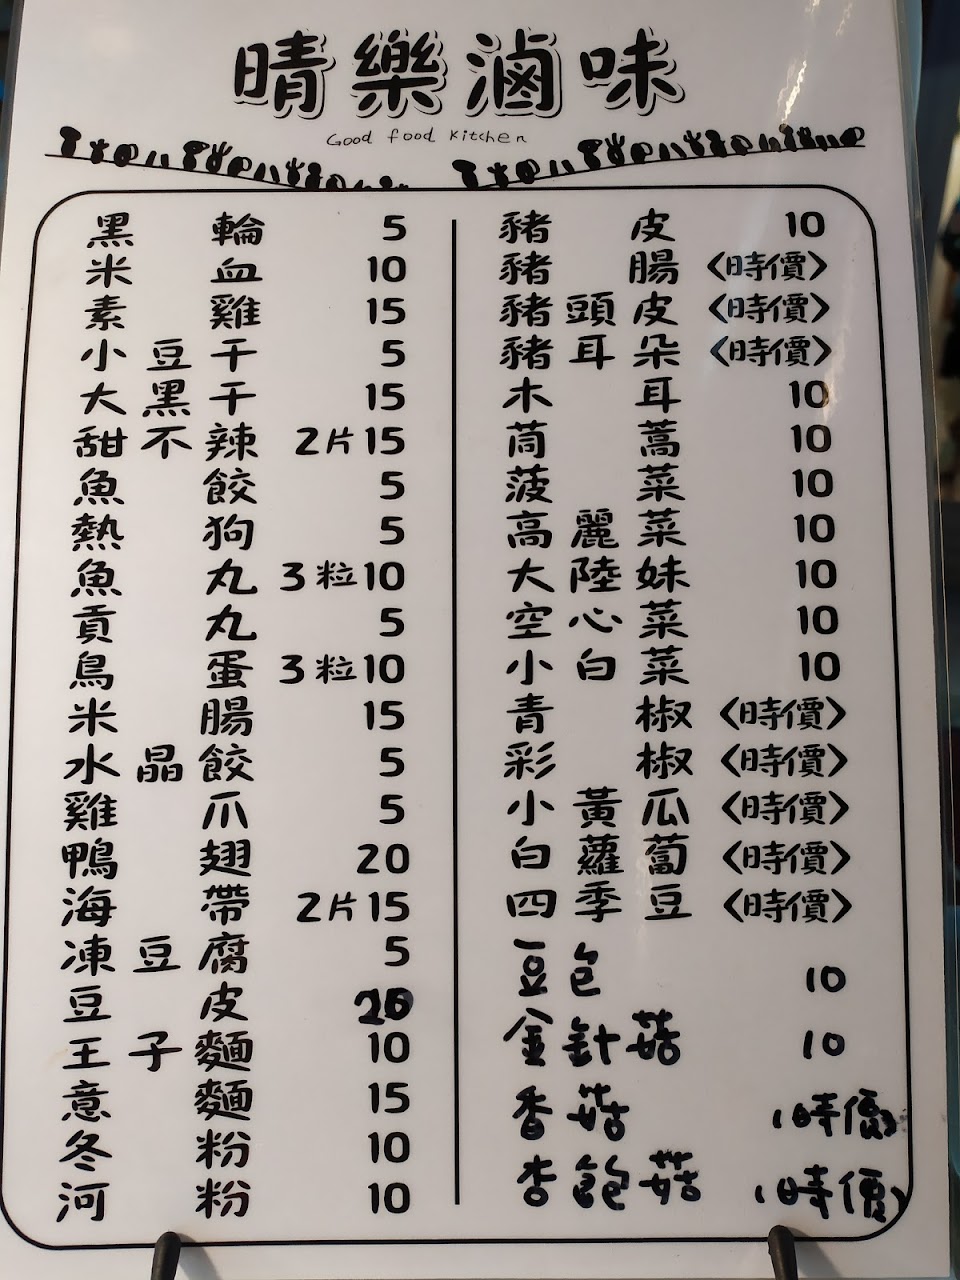 晴樂滷味
Good food Kitchen
黑輪 5
米血 10
素雞 15
小豆干 5
大黑干 15
甜不辣 2片15
魚餃 5
熱狗 5
魚丸 3粒10
貢丸 5
鳥蛋 3粒10
米腸 15
水晶餃 5
雞爪 5
鴨翅 20
海帶 2片15
凍豆腐 5
豆皮 20
王子麵 10
意麵 15
冬粉 10
河粉 10
豬皮 10
豬腸 〈時價〉
豬頭皮 〈時價〉
豬耳朵 〈時價〉
木耳 10
茼蒿 10
菠菜 10
高麗菜 10
大陸妹 10
空心菜 10
小白菜 10
青椒 〈時價〉
彩椒 〈時價〉
小黃瓜 〈時價〉
白蘿蔔 〈時價〉
四季豆 〈時價〉
豆包 10
金針菇 10
香菇 (時價)
杏鮑菇 (時價)